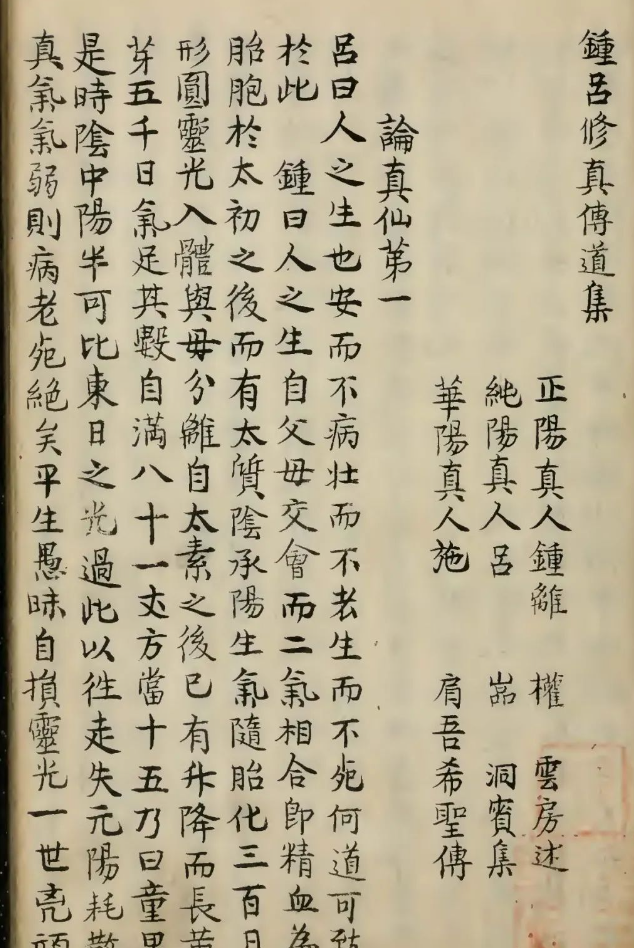 鍾呂修真傳道集
正陽真人鍾離 權 雲房述
純陽真人呂 嵓 洞賓集
華陽真人施 肩吾希聖傳
論真仙第一
呂曰人之生也安而不病壯而不老生而不死何道可致
於此 鍾曰人之生自父母交會而二氣相合即精血為
胎胞於太初之後而有太質陰承陽生氣隨胎化三百日
形圓靈光入體與母分離自太素之後已有升降而長黃
芽五千日氣足其數自滿八十一丈方當十五乃曰童男
是時陰中陽半可比東日之光過此以徃走失元陽耗散
真氣氣弱則病老死絕矣平生愚昧自損靈光一世兇頑